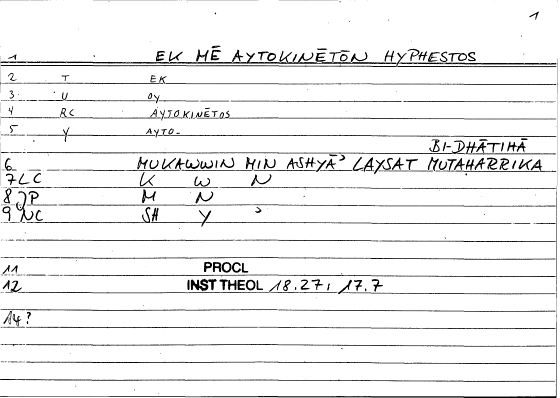 1
1 EK MĒ AYTOKINĒTŌN HYPHESTOS
2 T EK
3 U OY
4 RC AYTOKINĒTOS
5 Y AYTO-
BI-DHĀTIHĀ
6 MUKAWWIN MIN ASHYĀʾ LAYSAT MUTAHARRIKA
7 LC K W N
8 JP M N
9 NC SH Y ʾ
11 PROCL
12 INST THEOL 18.27; 17.7
14?